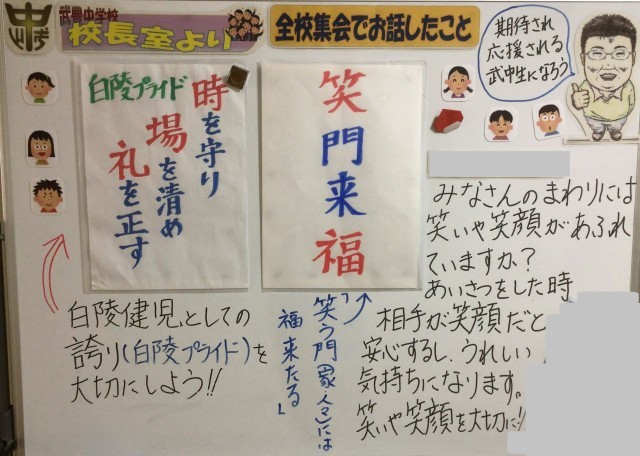 武豊中学校
校長室より
全校集会でお話したこと
期待され
応援される
武中生になろう
白陵プライド
時を守り
場を清め
礼を正す
笑門来福
みなさんのまわりには
笑いや笑顔があふれ
ていますか?
あいさつをした時
相手が笑顔だと
安心するし、うれしい
気持ちになります。
笑いや笑顔を大切に!!
「笑う門(家、人々)には
福来たる」
白陵健児、としての
誇り(白陵プライド)を
大切にしよう!!